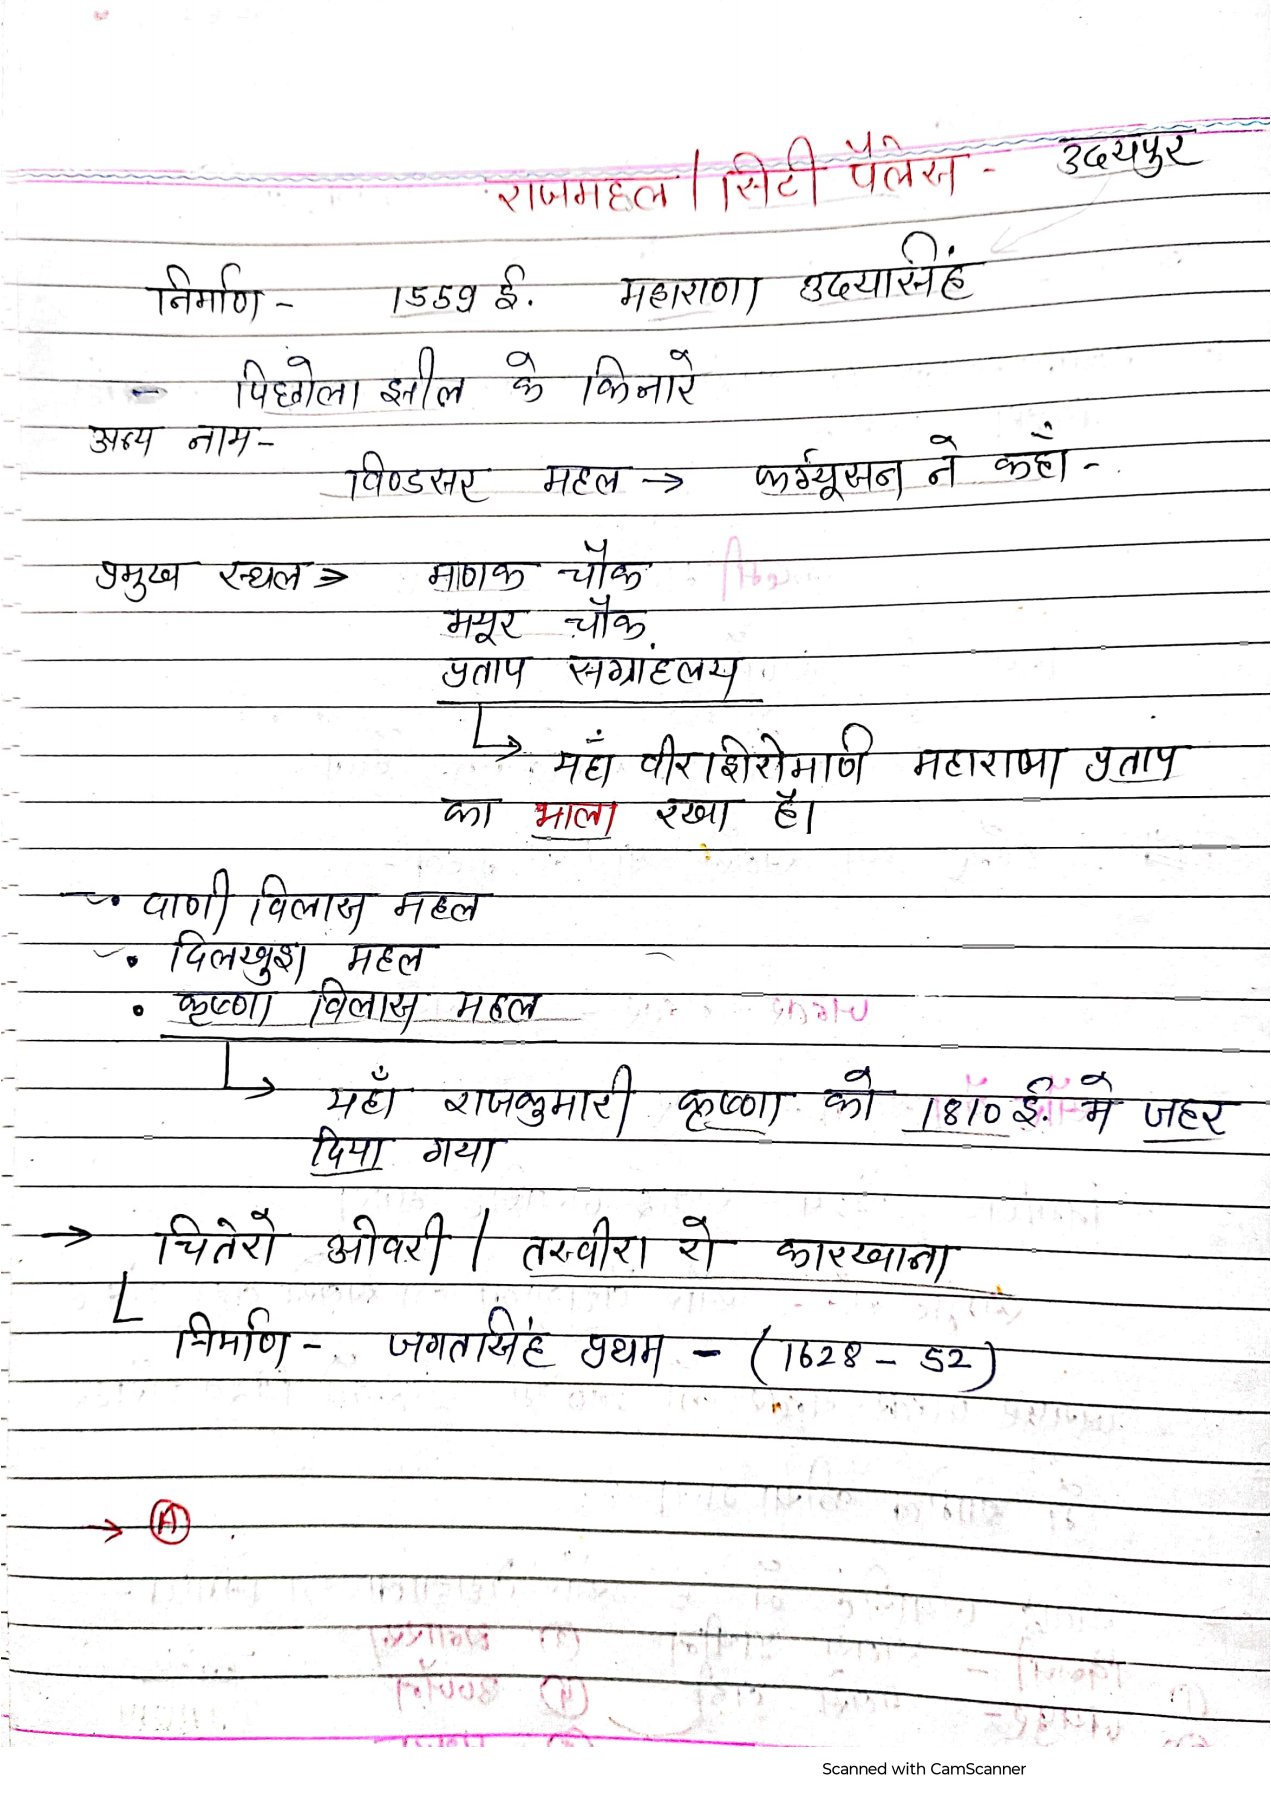 राजमहल / सिटी पैलेस - उदयपुर
निर्माण - 1559 ई. महाराणा उदयासिंह
- पिछोला झील के किनारे
अन्य नाम -
विण्डसर महल → फर्ग्यूसन ने कहाँ -
प्रमुख स्थल ⇒ माणक चौक
मयूर चौक
प्रताप संग्राहलय
↳ यहाँ वीरशिरोमणि महाराणा प्रताप
का भाला रखा है।
• वाणी विलास महल
• दिलखुश महल
• कृष्णा विलास महल
↳ यहाँ राजकुमारी कृष्णा को 1810 ई. मे जहर
दिया गया
→ चितेरो ओवरी / तस्वीरा रो कारखाना
निर्माण - जगतसिंह प्रथम - (1628 - 52)
→ Ⓐ
Scanned with CamScanner